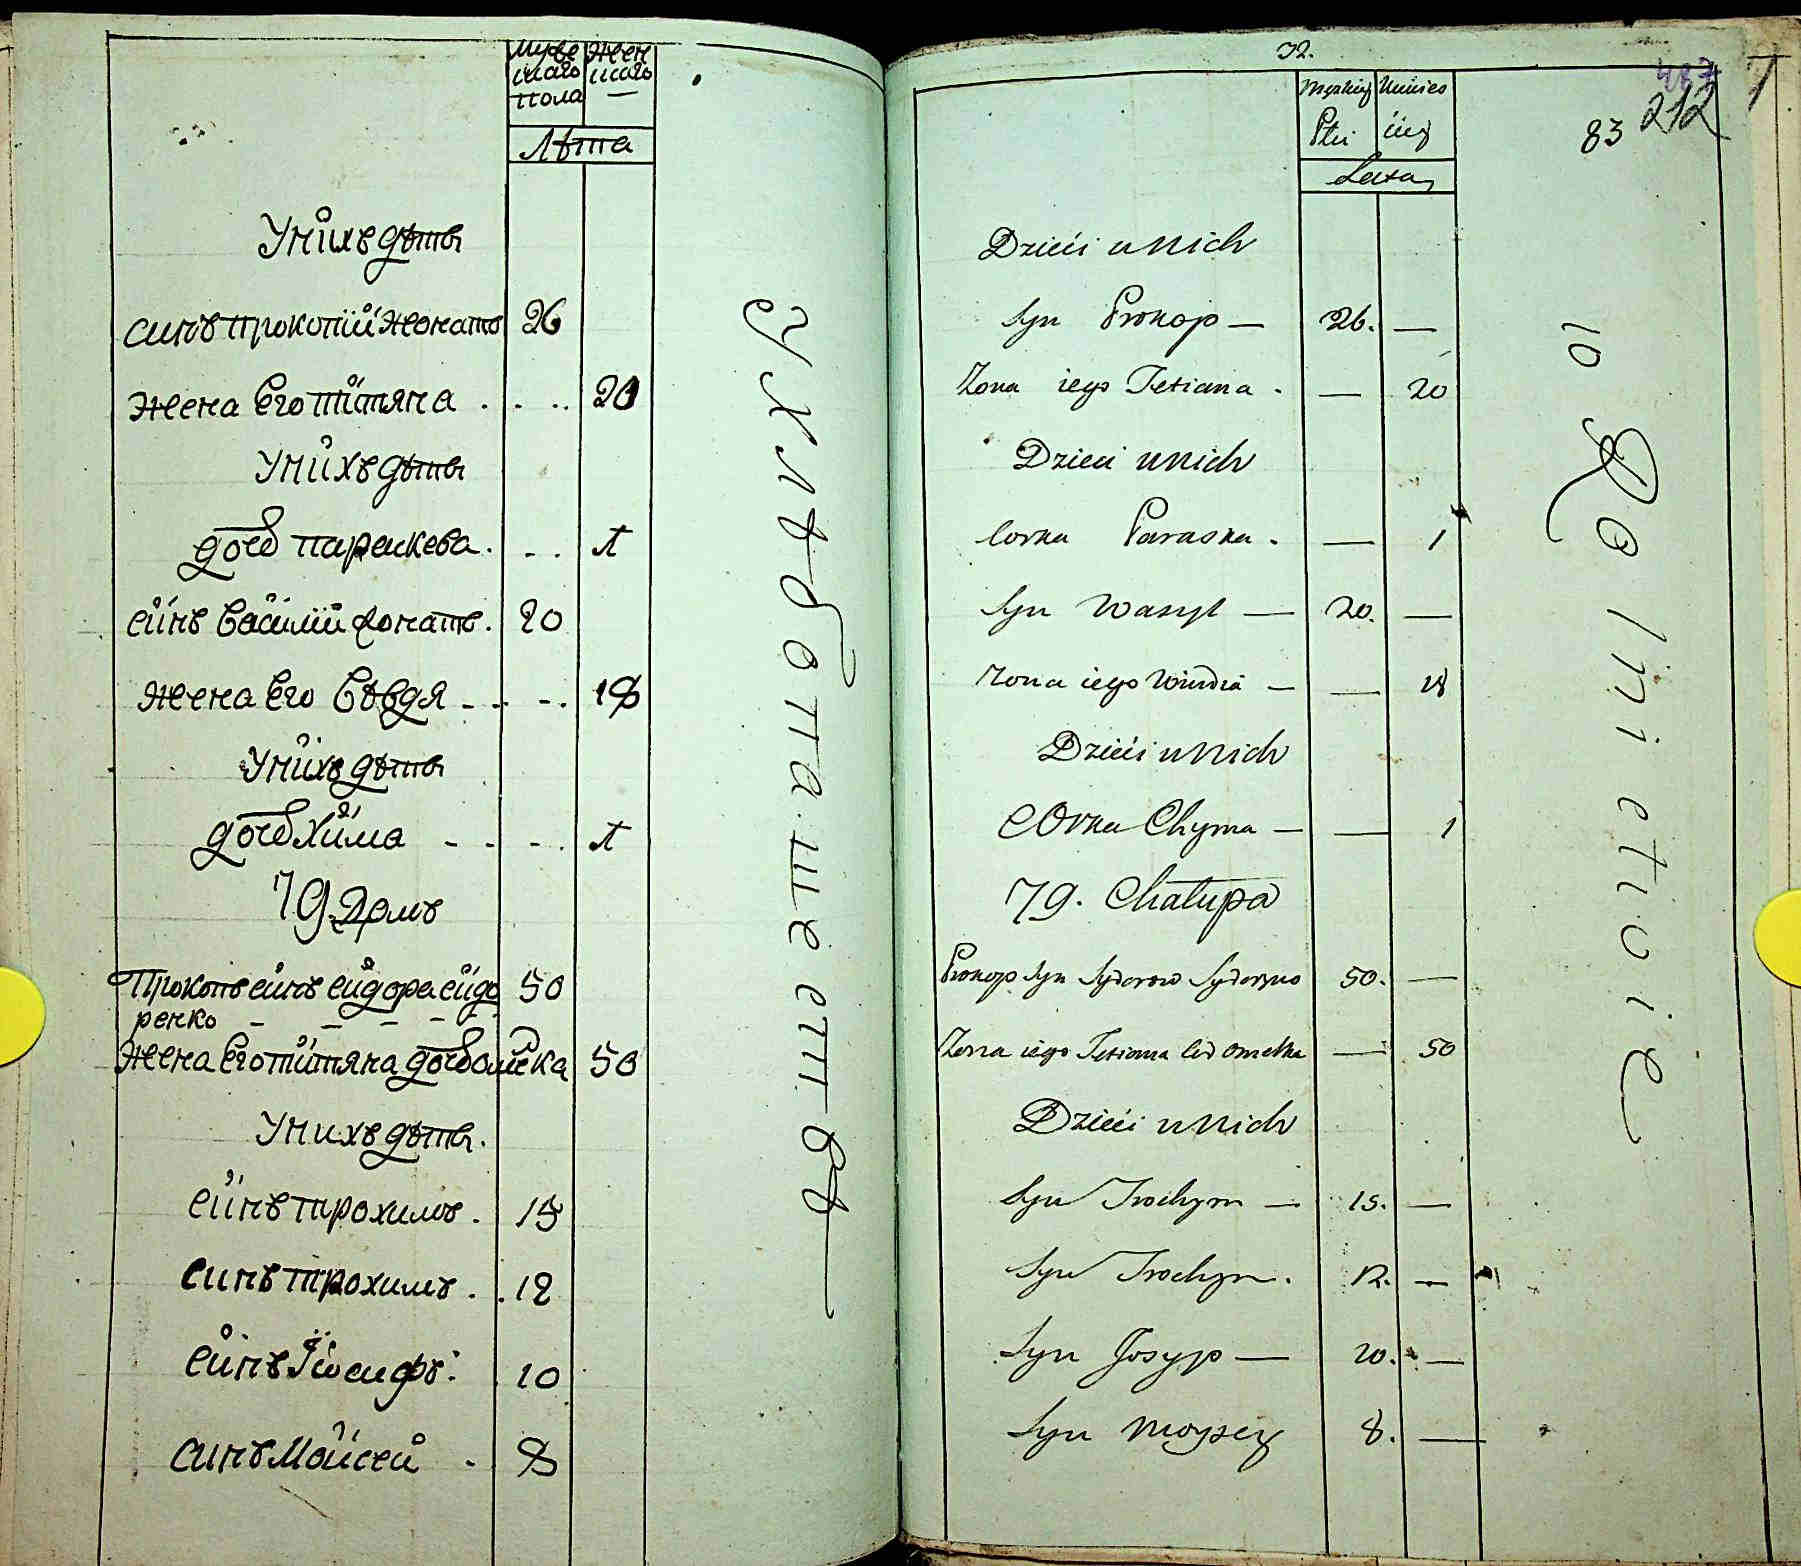 Мужескаго пола
Женскаго
Лѣта
У нихъ дѣти
синъ прокопій жонатъ 26
жена Его тітяна . . . . 20
У нихъ дѣти
дочь параскева . . . 1
синъ Василій жонатъ . 20
жена Его Евдя - - - . 18
У нихъ дѣти
дочь Хима - - - . 1
79 Домъ
Прокопъ синъ сидора сидо 50
ренко - - - - -
жена Его тітяна дочь 50
У нихъ дѣти.
синъ трохимъ . 15
синъ трохимъ . . 12
синъ Іосифъ . 10
синъ Мойсей . 8
У хлѣбопашествѣ
72.
Męskiey Płci
Lata
487
212
83
Dzieci u nich
Syn Prokop — 26. —
Zona iego Tetiana . — 20
Dzieci u nich
Corka Paraska . — 1
Syn Wasyl — 20. —
Zona iego Wiwdia — — 18
Dzieci u nich
Corka Chyma — — 1
79. Chałupa
Prokop Syn Sydorow 50. —
Zona iego Tetiana Omelka — 50
Dzieci u nich
Syn Trochym — 15. —
Syn Trochym . 12. —
Syn Josyp — 10. —
Syn Moysey 8. —
10 Rolnictwie